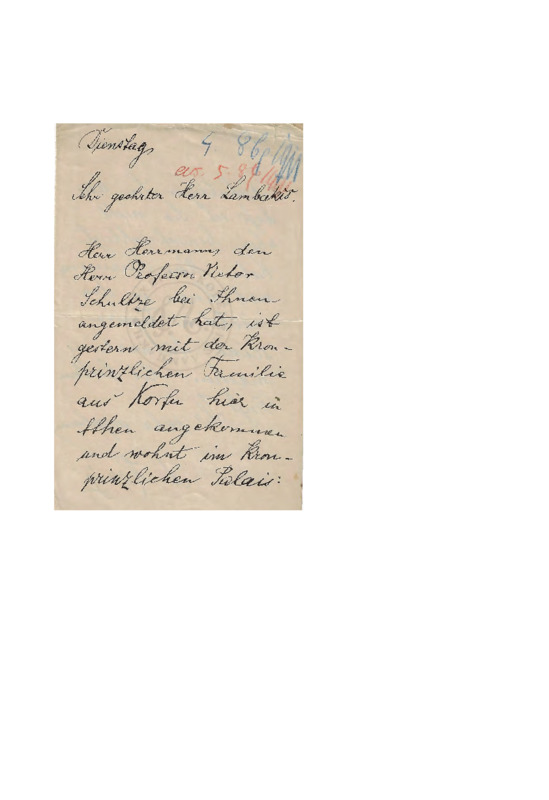 Dienstag
Sehr geehrter Herr Lambakis.
Herr Herrmann, den
Herr Professor Victor
Schultze bei Ihnen
angemeldet hat, ist
gestern mit der Kron-
prinzlichen Familie
aus Korfu hier in
Athen angekommen
und wohnt im Kron-
prinzlichen Palais: